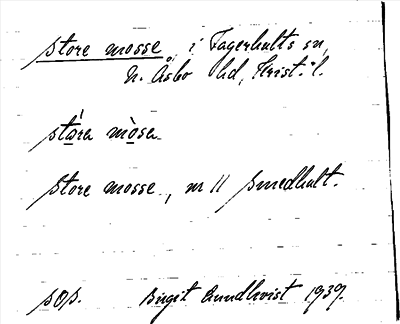 Store mosse, i Fagerhults sn,
N. Åsbo hd, Krist. l.
stå̀ra mòsa
Store mosse, m ll Smedhult.
SOS. Birgit Lundkvist 1939.